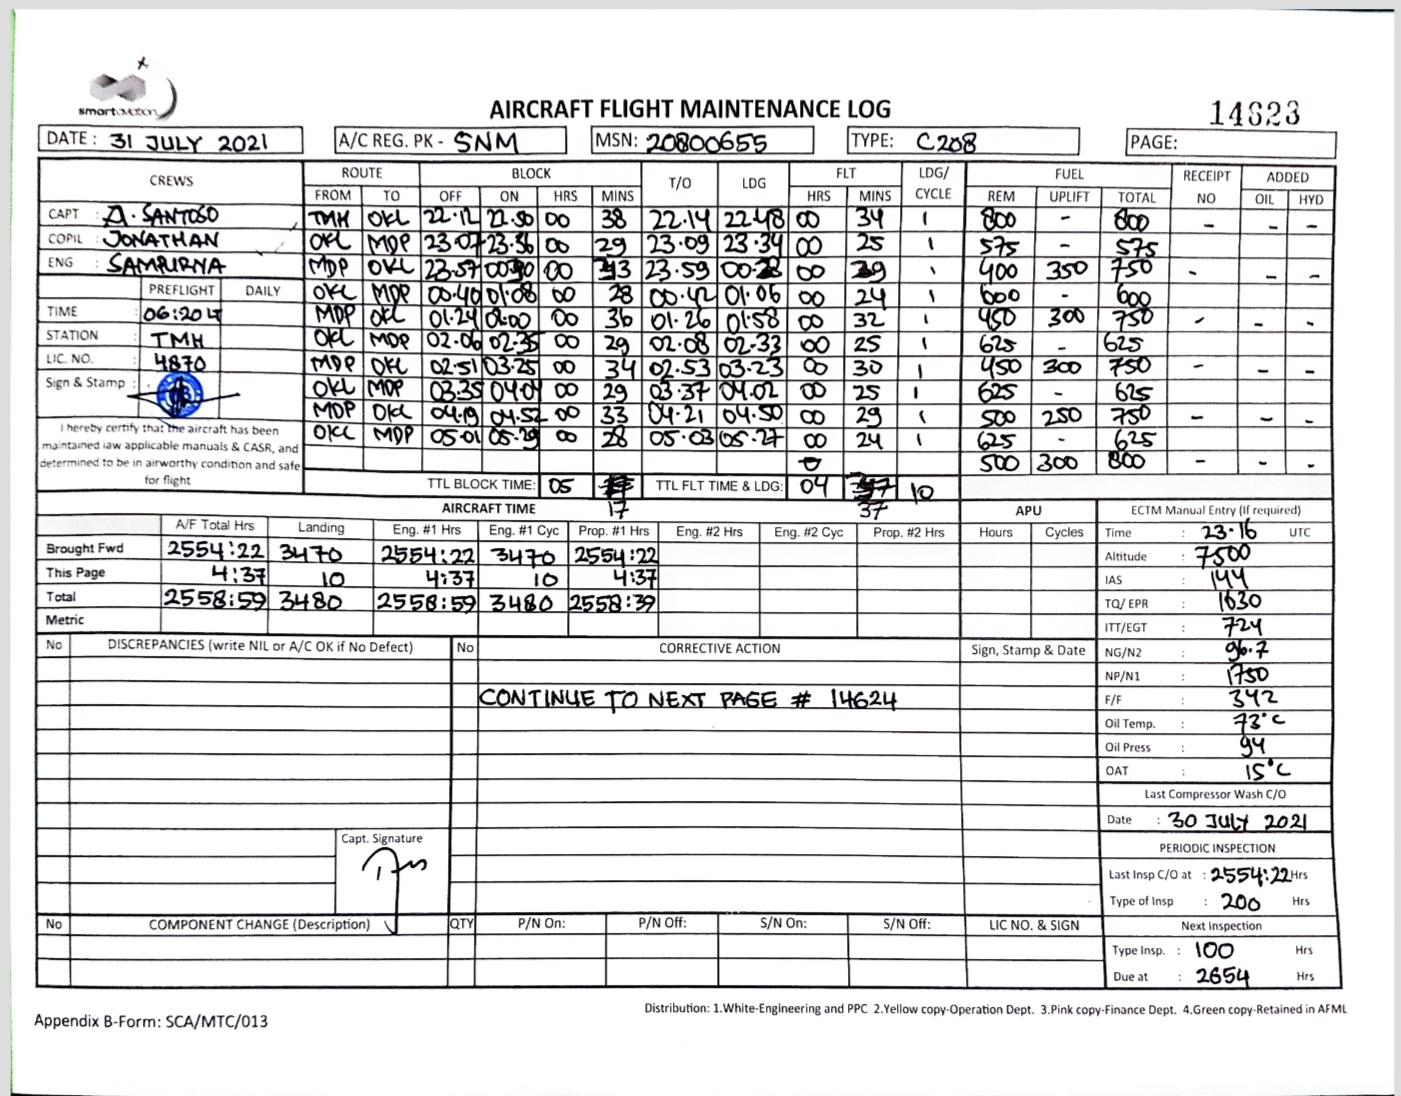 smartaviation
AIRCRAFT FLIGHT MAINTENANCE LOG
14623
DATE : 31 JULY 2021 A/C REG. PK - SNM MSN: 20800655 TYPE: C208 PAGE:
CREWS ROUTE BLOCK T/O LDG FLT LDG/ CYCLE FUEL RECEIPT NO ADDED
FROM TO OFF ON HRS MINS HRS MINS REM UPLIFT TOTAL OIL HYD
CAPT : A. SANTOSO TMH OKL 22.12 22.50 00 38 22.14 22.48 00 34 1 800 - 800 - - -
COPIL : JONATHAN OKL MDP 23.07 23.36 00 29 23.09 23.34 00 25 1 575 - 575
ENG : SAMPURNA MDP OKL 23.57 00 23.59 00 1 400 350 750 - - -
PREFLIGHT DAILY OKL MDP 00.40 01.08 00 28 00.42 01.06 00 24 1 600 - 600
TIME : 06:20 MDP OKL 01.24 00 36 01.26 01.58 00 32 1 450 300 750 - - -
STATION : TMH OKL MDP 02.06 02.35 00 29 02.08 02.33 00 25 1 625 - 625
LIC. NO. : 4870 MDP OKL 02.51 03.25 00 34 02.53 03.23 00 30 1 450 300 750 - - -
Sign & Stamp : OKL MDP 03.35 04.04 00 29 03.37 04.02 00 25 1 625 - 625
MDP OKL 04.19 04.52 00 33 04.21 04.50 00 29 1 500 250 750 - - -
I hereby certify that the aircraft has been OKL MDP 05.01 05.29 00 28 05.03 05.27 00 24 1 625 - 625
maintained iaw applicable manuals & CASR, and
determined to be in airworthy condition and safe 500 300 800 - - -
for flight
TTL BLOCK TIME: 05 17 TTL FLT TIME & LDG: 04 37 10
AIRCRAFT TIME APU ECTM Manual Entry (If required)
A/F Total Hrs Landing Eng. #1 Hrs Eng. #1 Cyc Prop. #1 Hrs Eng. #2 Hrs Eng. #2 Cyc Prop. #2 Hrs Hours Cycles Time : 23.16 UTC
Brought Fwd 2554:22 3470 2554:22 3470 2554:22 Altitude : 7500
This Page 4:37 10 4:37 10 4:37 IAS : 144
Total 2558:59 3480 2558:59 3480 2558:39 TQ/ EPR : 1630
Metric ITT/EGT : 724
No DISCREPANCIES (write NIL or A/C OK if No Defect) No CORRECTIVE ACTION Sign, Stamp & Date NG/N2 : 96.7
NP/N1 : 1750
CONTINUE TO NEXT PAGE # 14624 F/F : 342
Oil Temp. : 73°C
Oil Press : 94
OAT : 15°C
Last Compressor Wash C/O
Date : 30 JULY 2021
Capt. Signature
PERIODIC INSPECTION
Last Insp C/O at : 2554:22 Hrs
Type of Insp : 200 Hrs
No COMPONENT CHANGE (Description) QTY P/N On: P/N Off: S/N On: S/N Off: LIC NO. & SIGN Next Inspection
Type Insp. : 100 Hrs
Due at : 2654 Hrs
Distribution: 1.White-Engineering and PPC 2.Yellow copy-Operation Dept. 3.Pink copy-Finance Dept. 4.Green copy-Retained in AFML
Appendix B-Form: SCA/MTC/013